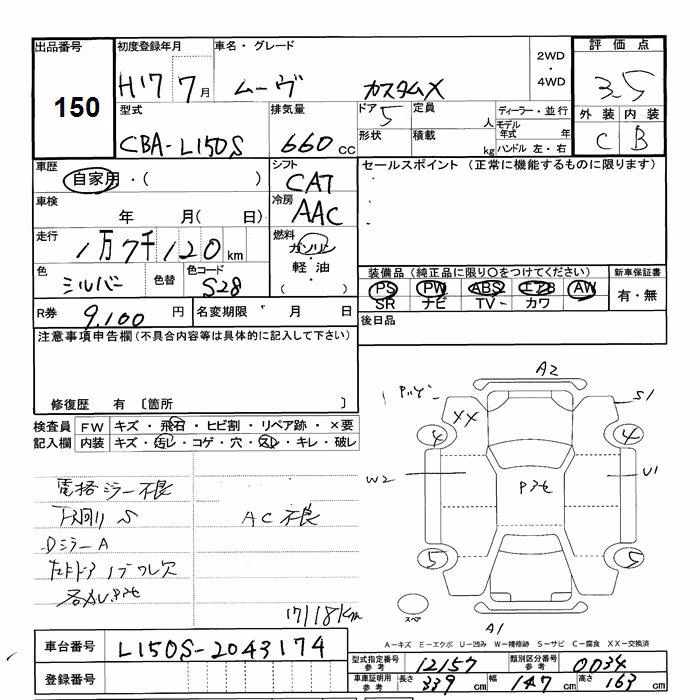 出品番号 初度登録年月 車名・グレード 2WD・4WD 評価点
150 H17 7月 ムーヴ カスタムX 3.5
型式 排気量 ドア 5 定員 人 ディーラー・並行 外装 内装
CBA-L150S 660cc 形状 積載 kg モデル年式 年 ハンドル 左・右 C B
車歴 自家用・( ) シフト CAT セールスポイント (正常に機能するものに限ります)
車検 年 月( 日) 冷房 AAC
走行 1万7千120km 燃料 ガソリン・軽油・( )
色 シルバー 色替 色コード S28 装備品(純正品に限り○をつけてください) 新車保証書
PS PW ABS エアB AW 有・無
SR ナビ TV カワ
R券 9,100円 名変期限 月 日 後日品
注意事項申告欄(不具合内容等は具体的に記入して下さい)
修復歴 有 〔箇所 〕
検査員 FW キズ・飛石・ヒビ割・リペア跡・×要
記入欄 内装 キズ・汚レ・コゲ・穴・スレ・キレ・破レ
電格ミラー不良
下廻りS AC不良
DミラーA
17118km
A2
XX S1
4 4
W2 Pアセ U1
5 5
スペア
A1
A−キズ E−エクボ U−凹み W−補修跡 S−サビ C−腐食 XX−交換済
車台番号 L150S-2043174
登録番号
型式指定番号 参考 12157 類別区分番号 参考 0034
車庫証明用 参考 長さ 339cm 幅 147cm 高さ 163cm